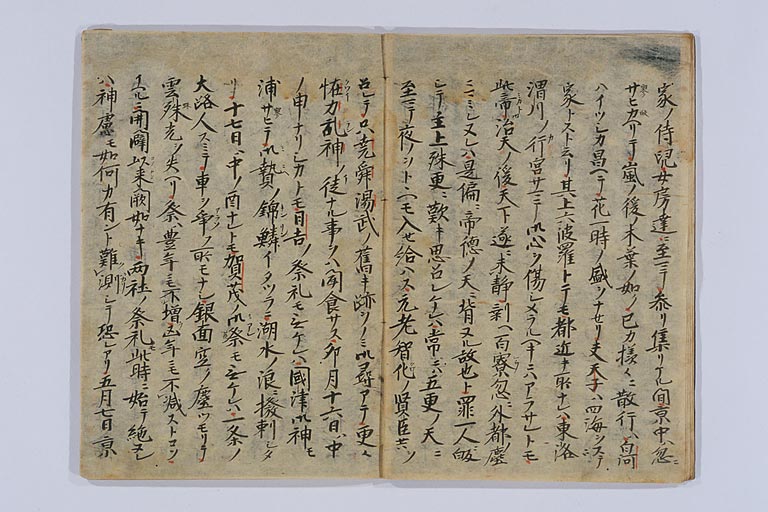 家ノ侍児女房達ニ至マテ参リ集リケル間京中ハ忽ニ
サヒカヘリテ嵐ノ後ノ木葉ノ如ク己カ様々ニ散行ハ白河
ハイツシカ昌ヘテ花一時ノ盛ヲナセリ夫天子ハ四海ヲ以テ
家トスト云リ其上六波羅トテモ都近キ所ナレハ東洛
渭川ノ行宮サマテ御心ヲ傷シメラルヘキニハアラサレトモ
此帝治天ノ後天下遂ニ未静剰ヘ百寮忽ニ外都ノ塵
ニマミレヌレハ是偏ニ帝徳ノ天ニ背ヌル故也ト罪一人ニ帰
シテ主上殊更ニ歎キ思召シケレハ常ニハ五更ノ天ニ
至マテ夜ノヲトヽニモ入せ給ハス元老智化ノ賢臣共ヲ
召シテ只尭舜湯武ノ舊キ跡ヲノミ御尋アテ更々
怪力乱神ノ徒ナル事ヲハ聞食サス卯月十六日ハ中
ノ申ナリシカトモ日吉ノ祭礼モナケレハ國津御神モ
浦サヒテ御贄ノ錦鱗イタツラニ湖水ノ浪ニ撥剌タ
リ十七日ハ中ノ酉ナレトモ賀茂御祭モナケレハ一条ノ
大路人スミテ車ヲ争フ所モナシ銀面空ク塵ツモリテ
雲珠光ヲ失ヘリ祭ハ豊年モ不増凶年モ不減ストコソ
イヘルニ開闢以来闕如ナキ両社ノ祭礼此時ニ始テ絶ヌレ
ハ神慮モ如何カ有ント難測シテ恐レアリ五月七日京